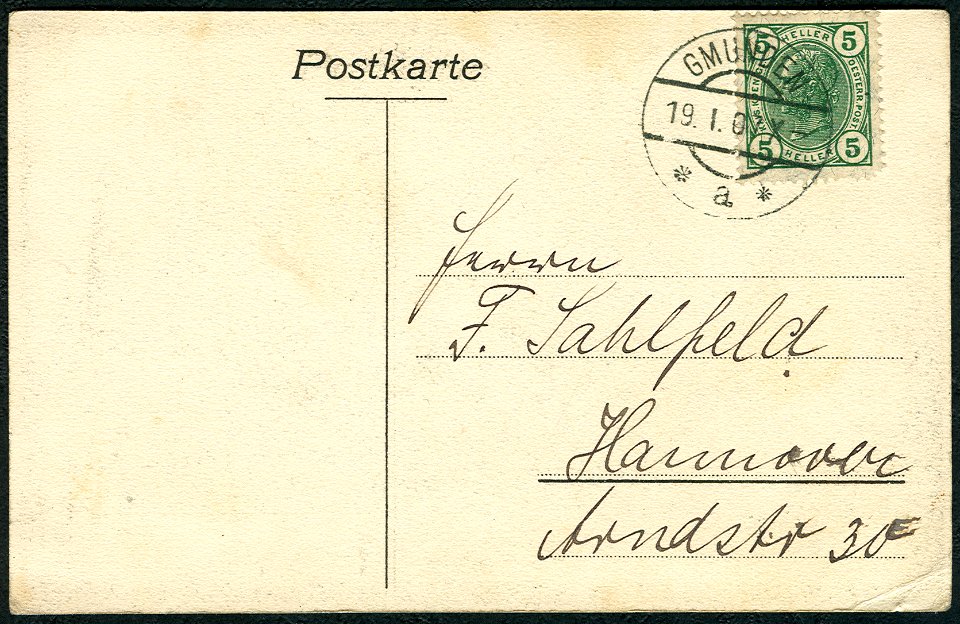 Postkarte
GMUNDEN
19. I. 0
* a *
5 HELLER 5
OESTERR. POST.
5 HELLER 5
Herrn
F. Sahlfeld
Hannover
Arndstr 30